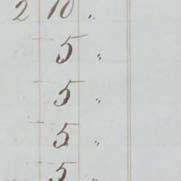 2 10 "
5 "
5 "
5 "
5